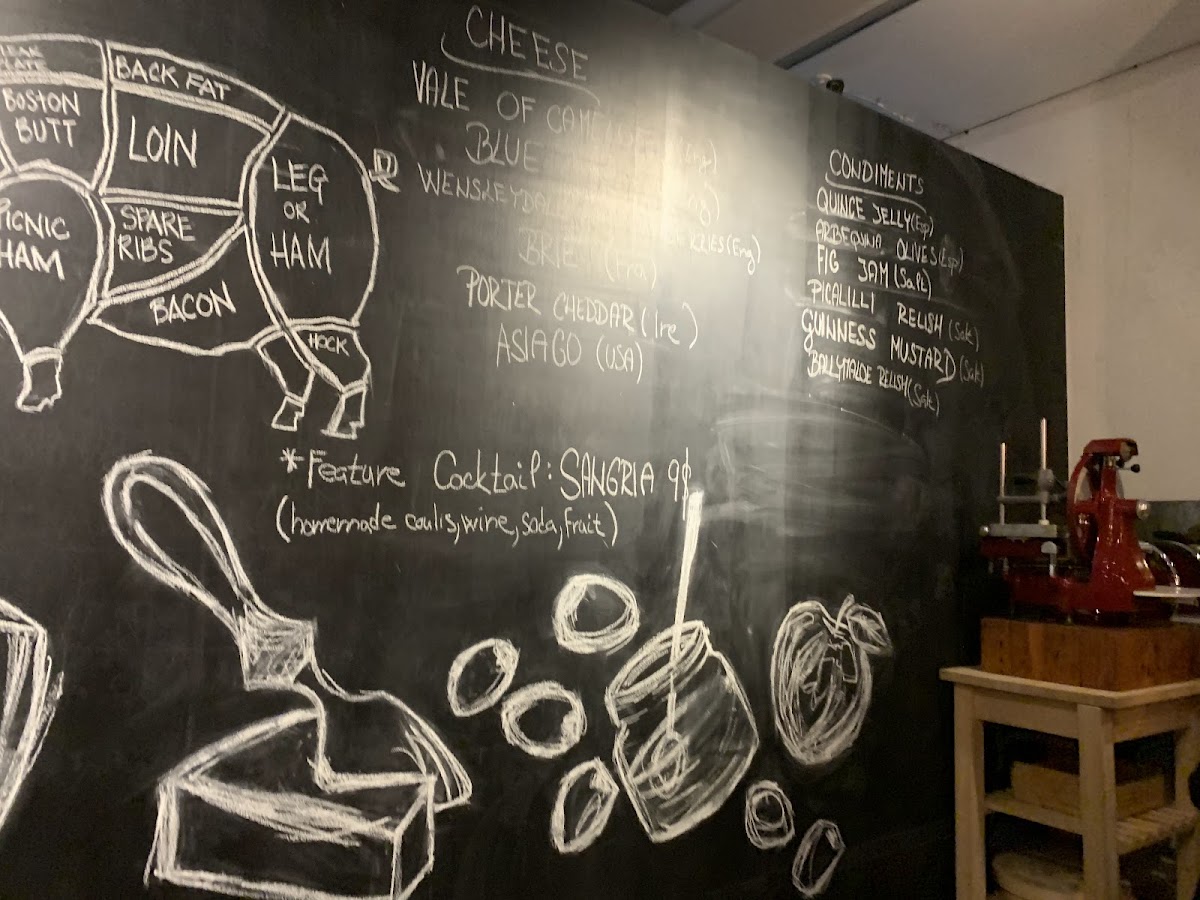 BACK FAT
BOSTON
BUTT
LOIN
LEG
OR
HAM
PICNIC
HAM
SPARE
RIBS
BACON
HOCK
CHEESE
VALE OF
BLUE
BRIE (Fra)
PORTER CHEDDAR (Ire)
ASIAGO (USA)
CONDIMENTS
QUINCE JELLY (Esp)
ARBEQUINA OLIVES (Esp)
FIG JAM (Salt)
PICALILLI RELISH (Salt)
GUINNESS MUSTARD (Salt)
RELISH (Salt)
*Feature Cocktail: SANGRIA 9$
(homemade coulis, wine, soda, fruit)